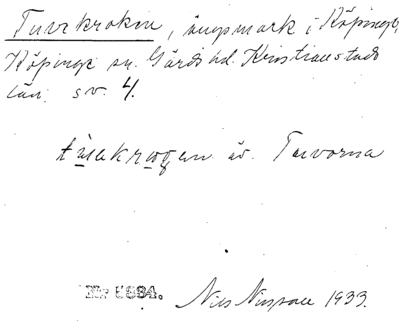 Tuvekroken, ängsmark i Köpinge,
Köpinge sn. Gärds hd. Kristianstads
län. sv. 4.
äv. Tuvorna
No 5694.
Nils Nilsson 1933.